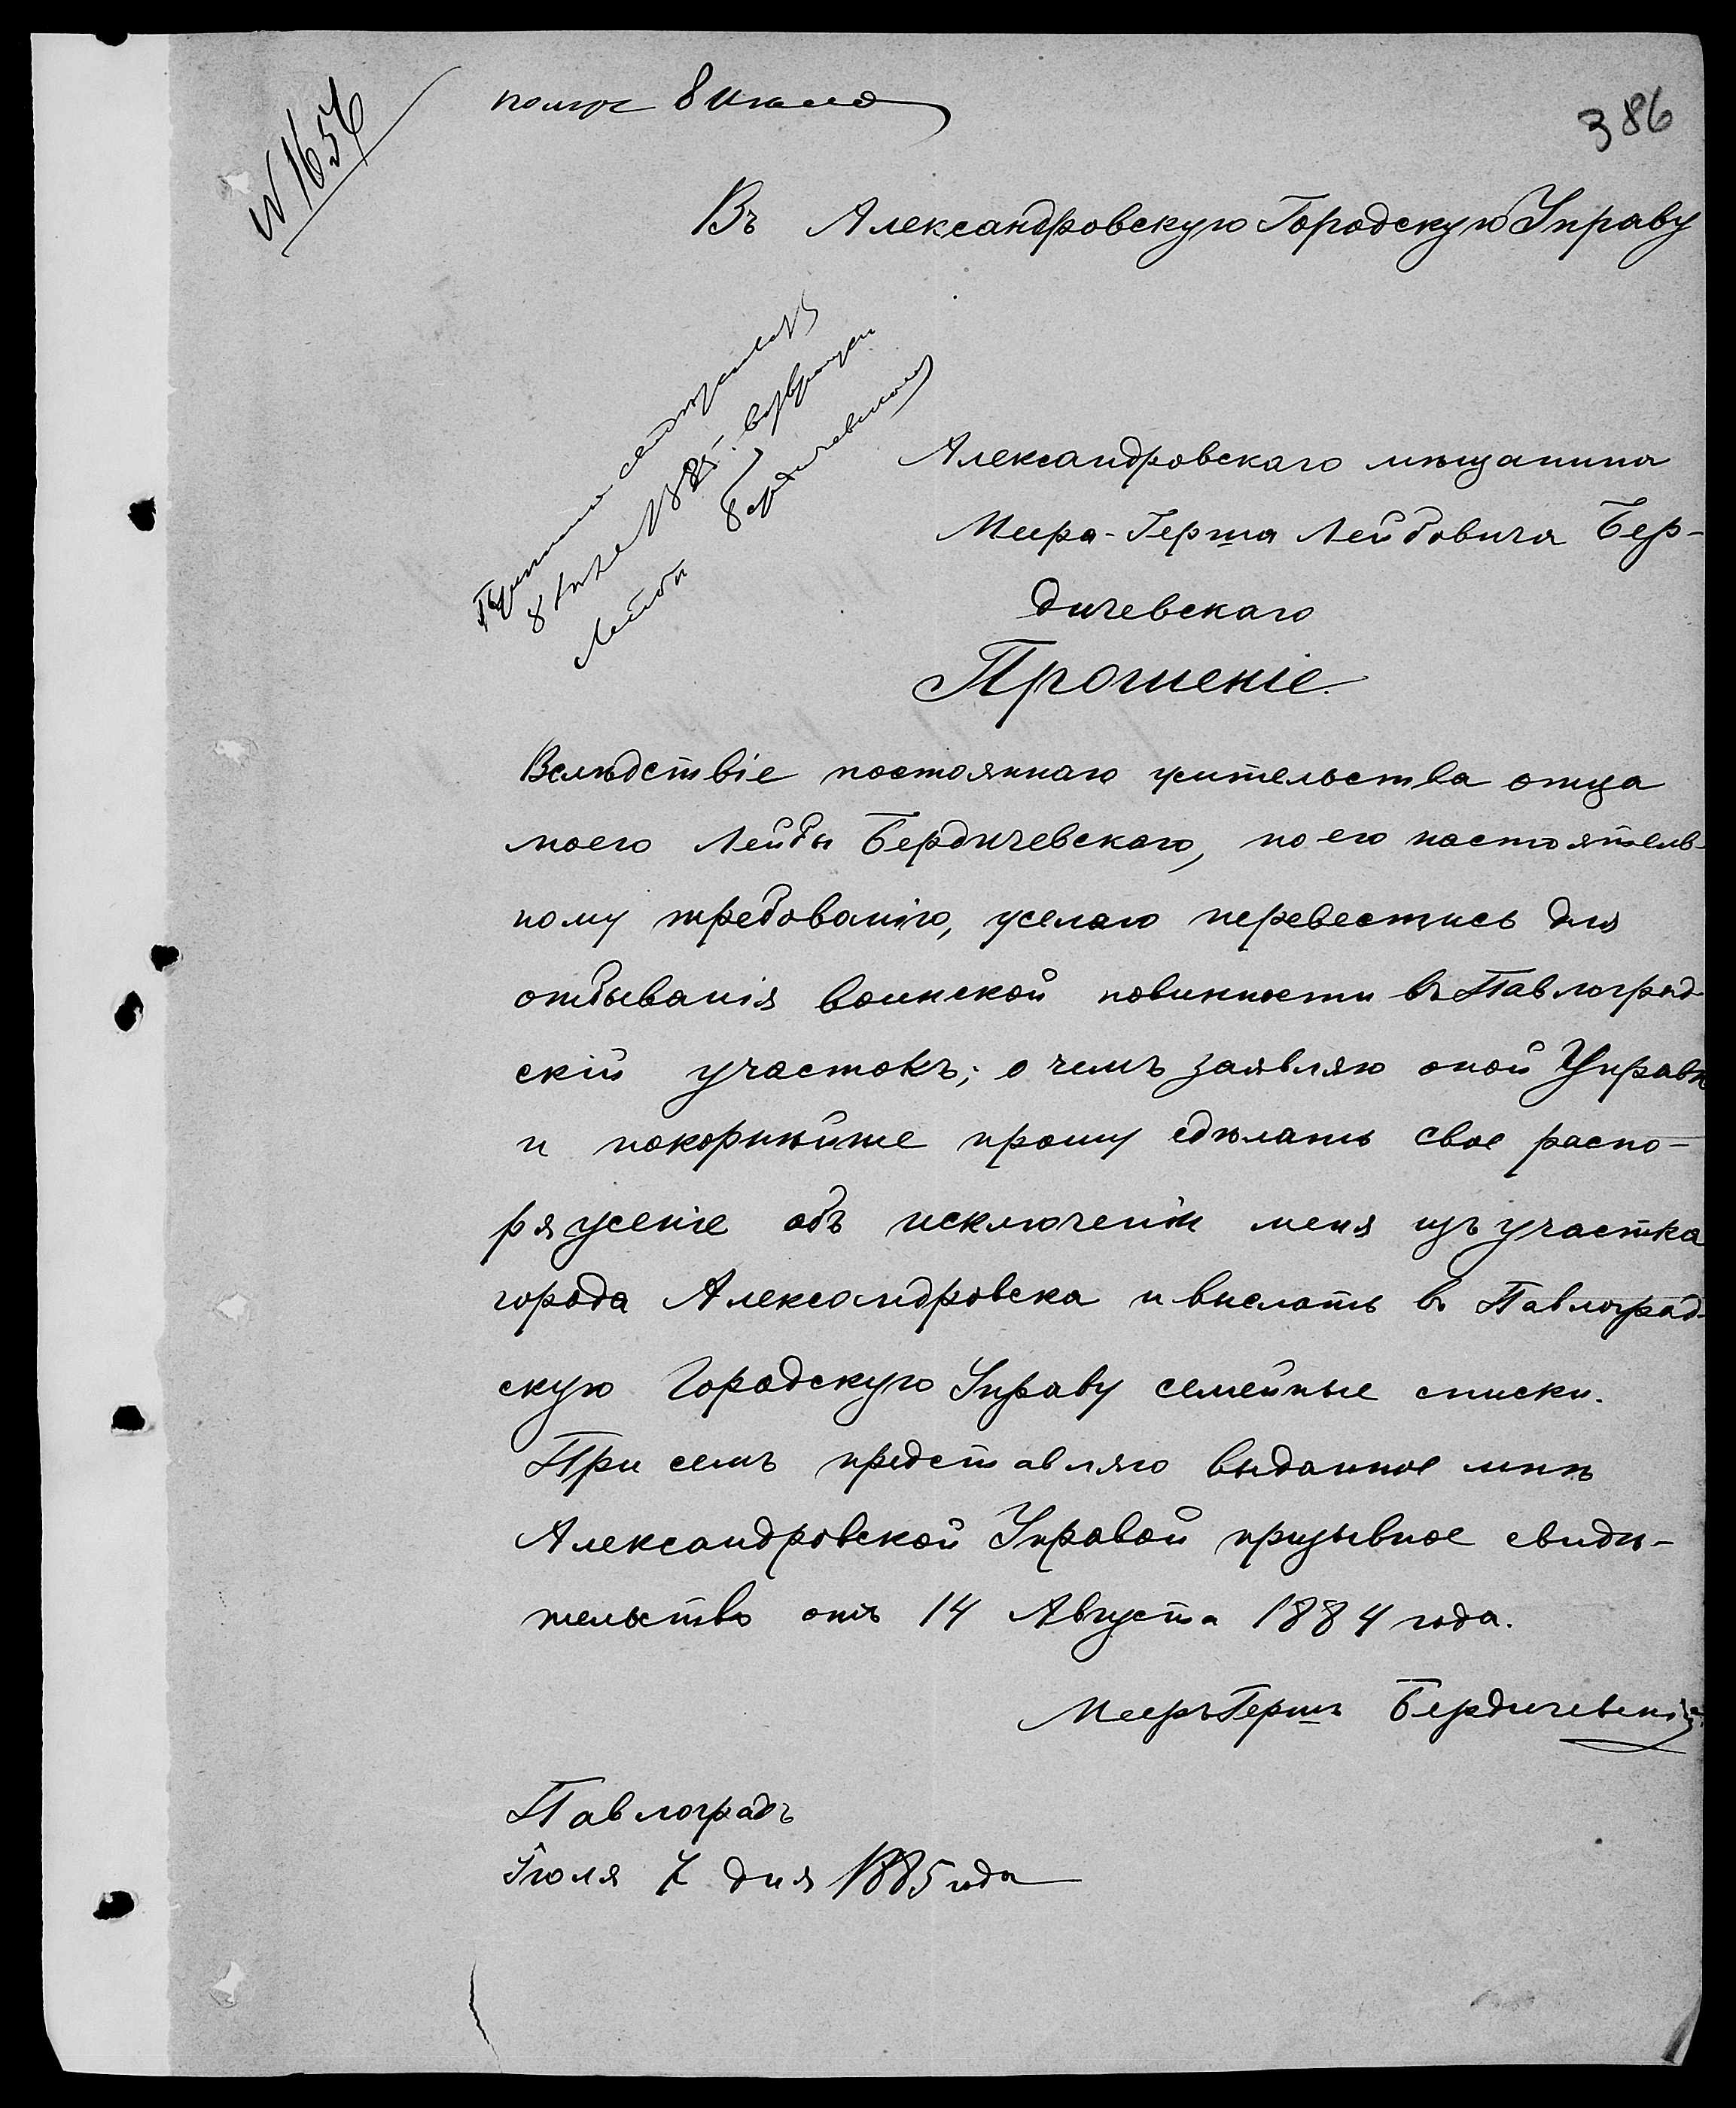 N 1654
получ 8 Июля
386
Въ Александровскую Городскую Управу
8 Июля 1885 г. возвращен
Лейбѣ Бердичевскому
Александровскаго мѣщанина
Меера-Герша Лейбовича Бер-
дичевскаго
Прошеніе.
Вслѣдствіе постояннаго жительства отца
моего Лейбы Бердичевскаго, по его настоятель-
ному требованію, желаю перевестись для
отбыванія воинской повинности въ Павлоград-
скій участокъ; о чемъ заявляю оной Управѣ
и покорнѣйше прошу сдѣлать свое распо-
ряженіе объ исключеніи меня изъ участка
города Александровска и выслать въ Павлоград-
скую Городскую Управу семейные списки.
При семъ представляю выданное мнѣ
Александровской Управой призывное свидѣ-
тельство отъ 14 Августа 1884 года.
Мееръ Гершъ Бердичевскій
Павлоградъ
Іюля 7 дня 1885 года